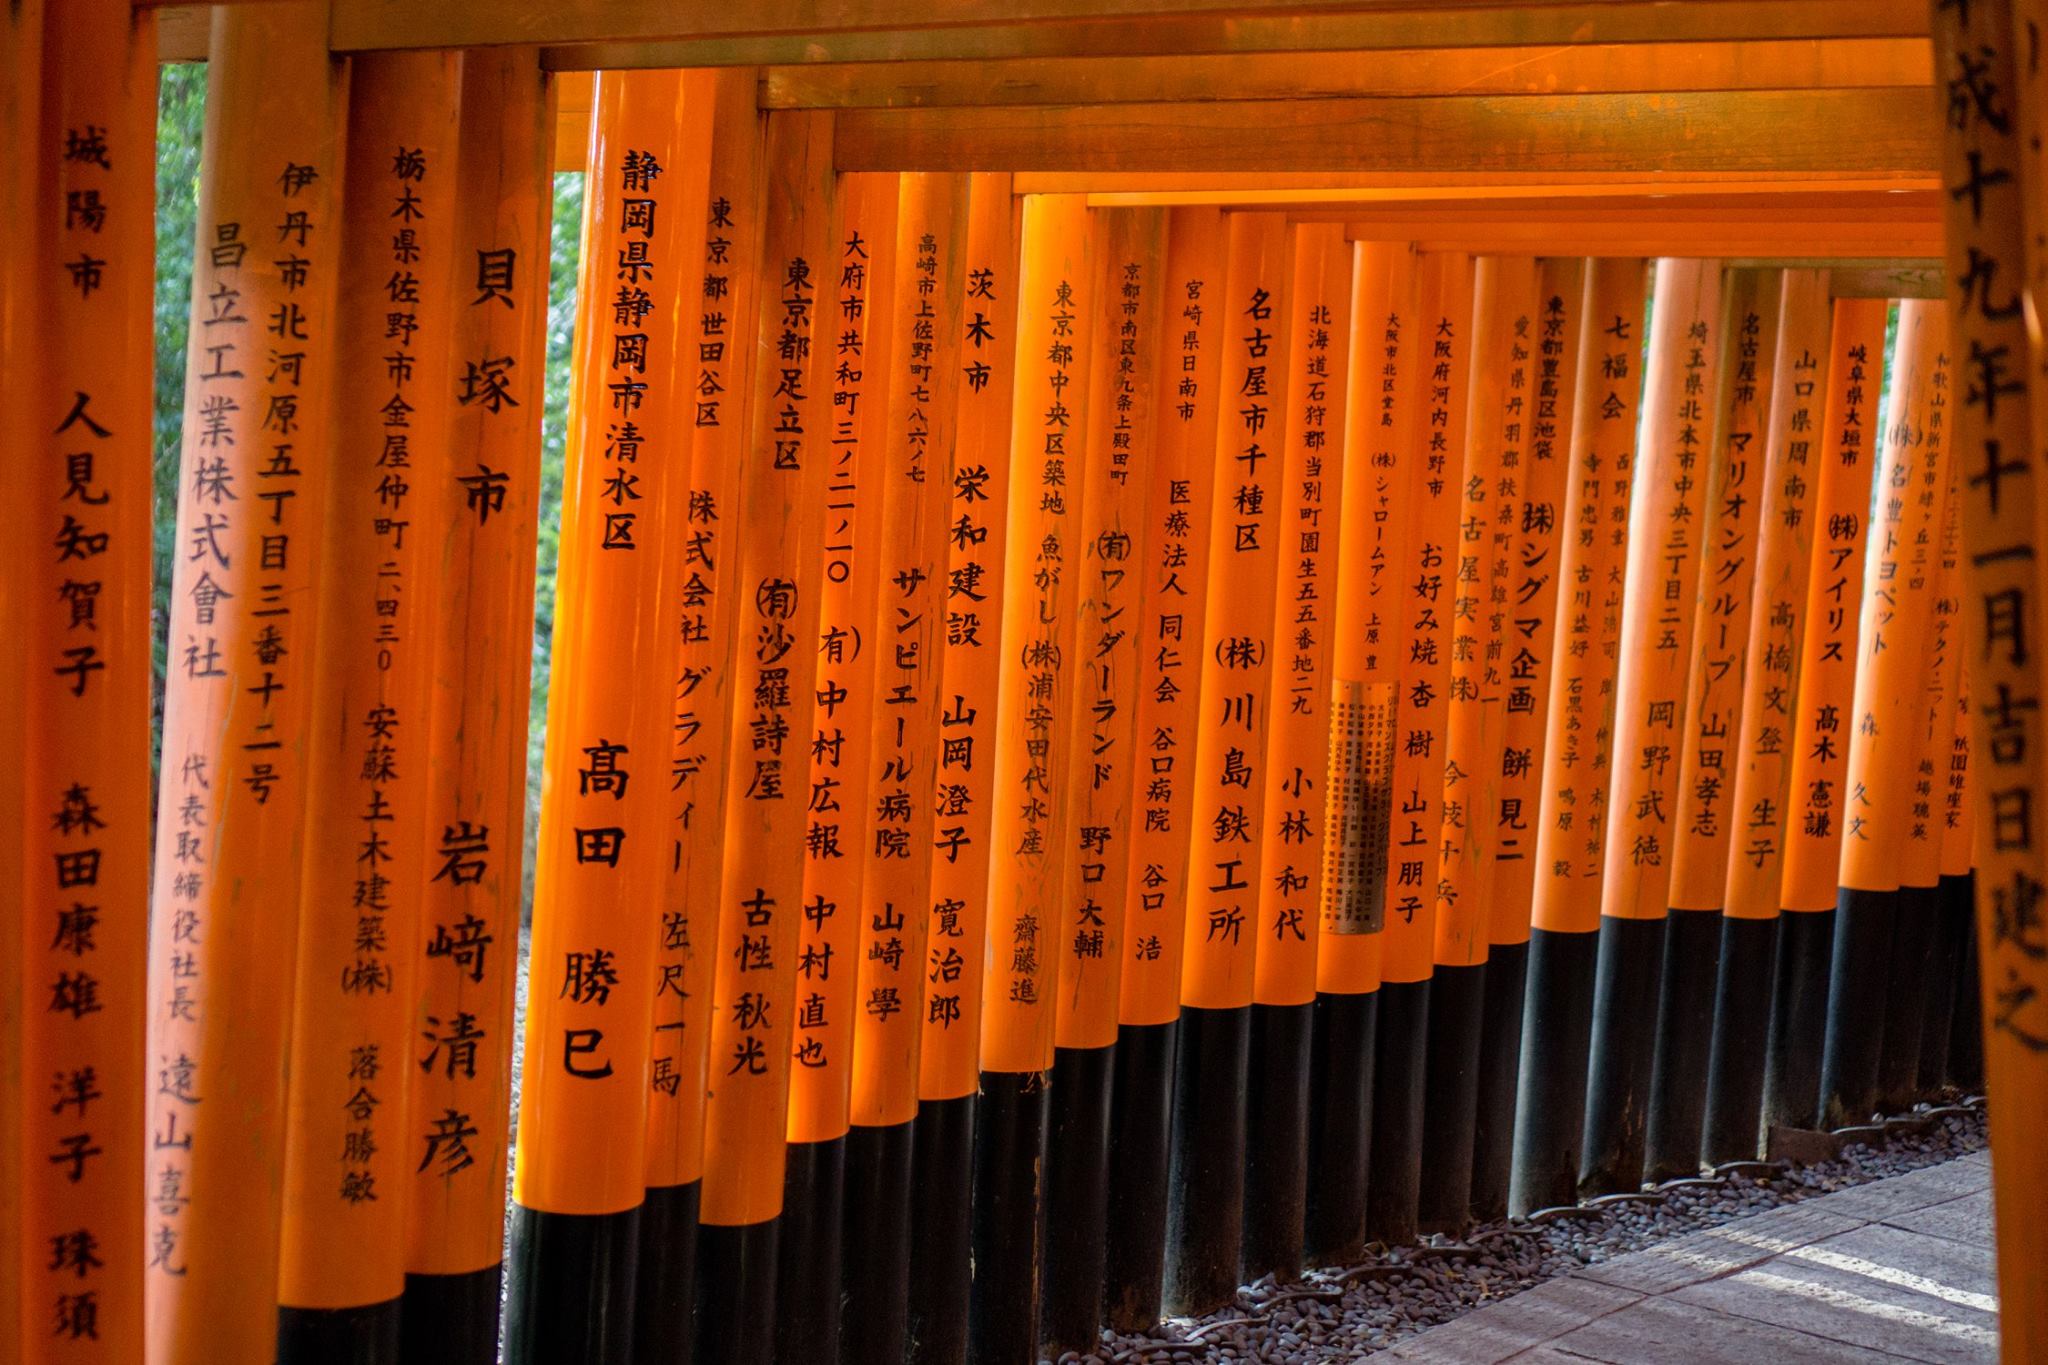 城陽市 人見知賀子 森田康雄 洋子 珠須
昌立工業株式會社 代表取締役社長 遠山喜克
伊丹市北河原五丁目三番十二号
栃木県佐野市金屋仲町二、四三〇 安蘇土木建築(株) 落合勝敏
貝塚市 岩﨑清彦
静岡県静岡市清水区 髙田勝巳
東京都世田谷区 株式会社グラディー 佐尺一馬
東京都足立区 (有)沙羅詩屋 古性秋光
大府市共和町三ノ二一ノ一〇 (有)中村広報 中村直也
高崎市上佐野町七八六ノ七 サンピエール病院 山崎學
茨木市 栄和建設 山岡澄子 寛治郎
東京都中央区築地 魚がし (株)浦安田代水産 齋藤進
京都市南区東九条上殿田町 (有)ワンダーランド 野口大輔
宮崎県日南市 医療法人 同仁会 谷口病院 谷口浩
名古屋市千種区 (株)川島鉄工所
北海道石狩郡当別町園生五五番地二九 小林和代
大阪市北区堂島 (株)シャロームアン 上原豊
大阪府河内長野市 お好み焼 杏樹 山上朋子
名古屋実業(株) 今枝十兵
愛知県丹羽郡扶桑町高雄宮前九一
東京都豊島区池袋 (株)シグマ企画 餅見二
七福会
寺門忠男 古川益好 石黒あき子 鳴原毅
西野雅章 大山浩司 木村祐二
埼玉県北本市中央三丁目二五 岡野武徳
名古屋市 マリオングループ 山田孝志
山口県周南市 高橋文登 生子
岐阜県大垣市 (株)アイリス 髙木憲謙
(株)名豊トヨペット 森久文
和歌山県新宮市緑ヶ丘三ノ四 (株)テクノ・ニットー 越場聰英
祇園雄座家
平成十九年十一月吉日建之